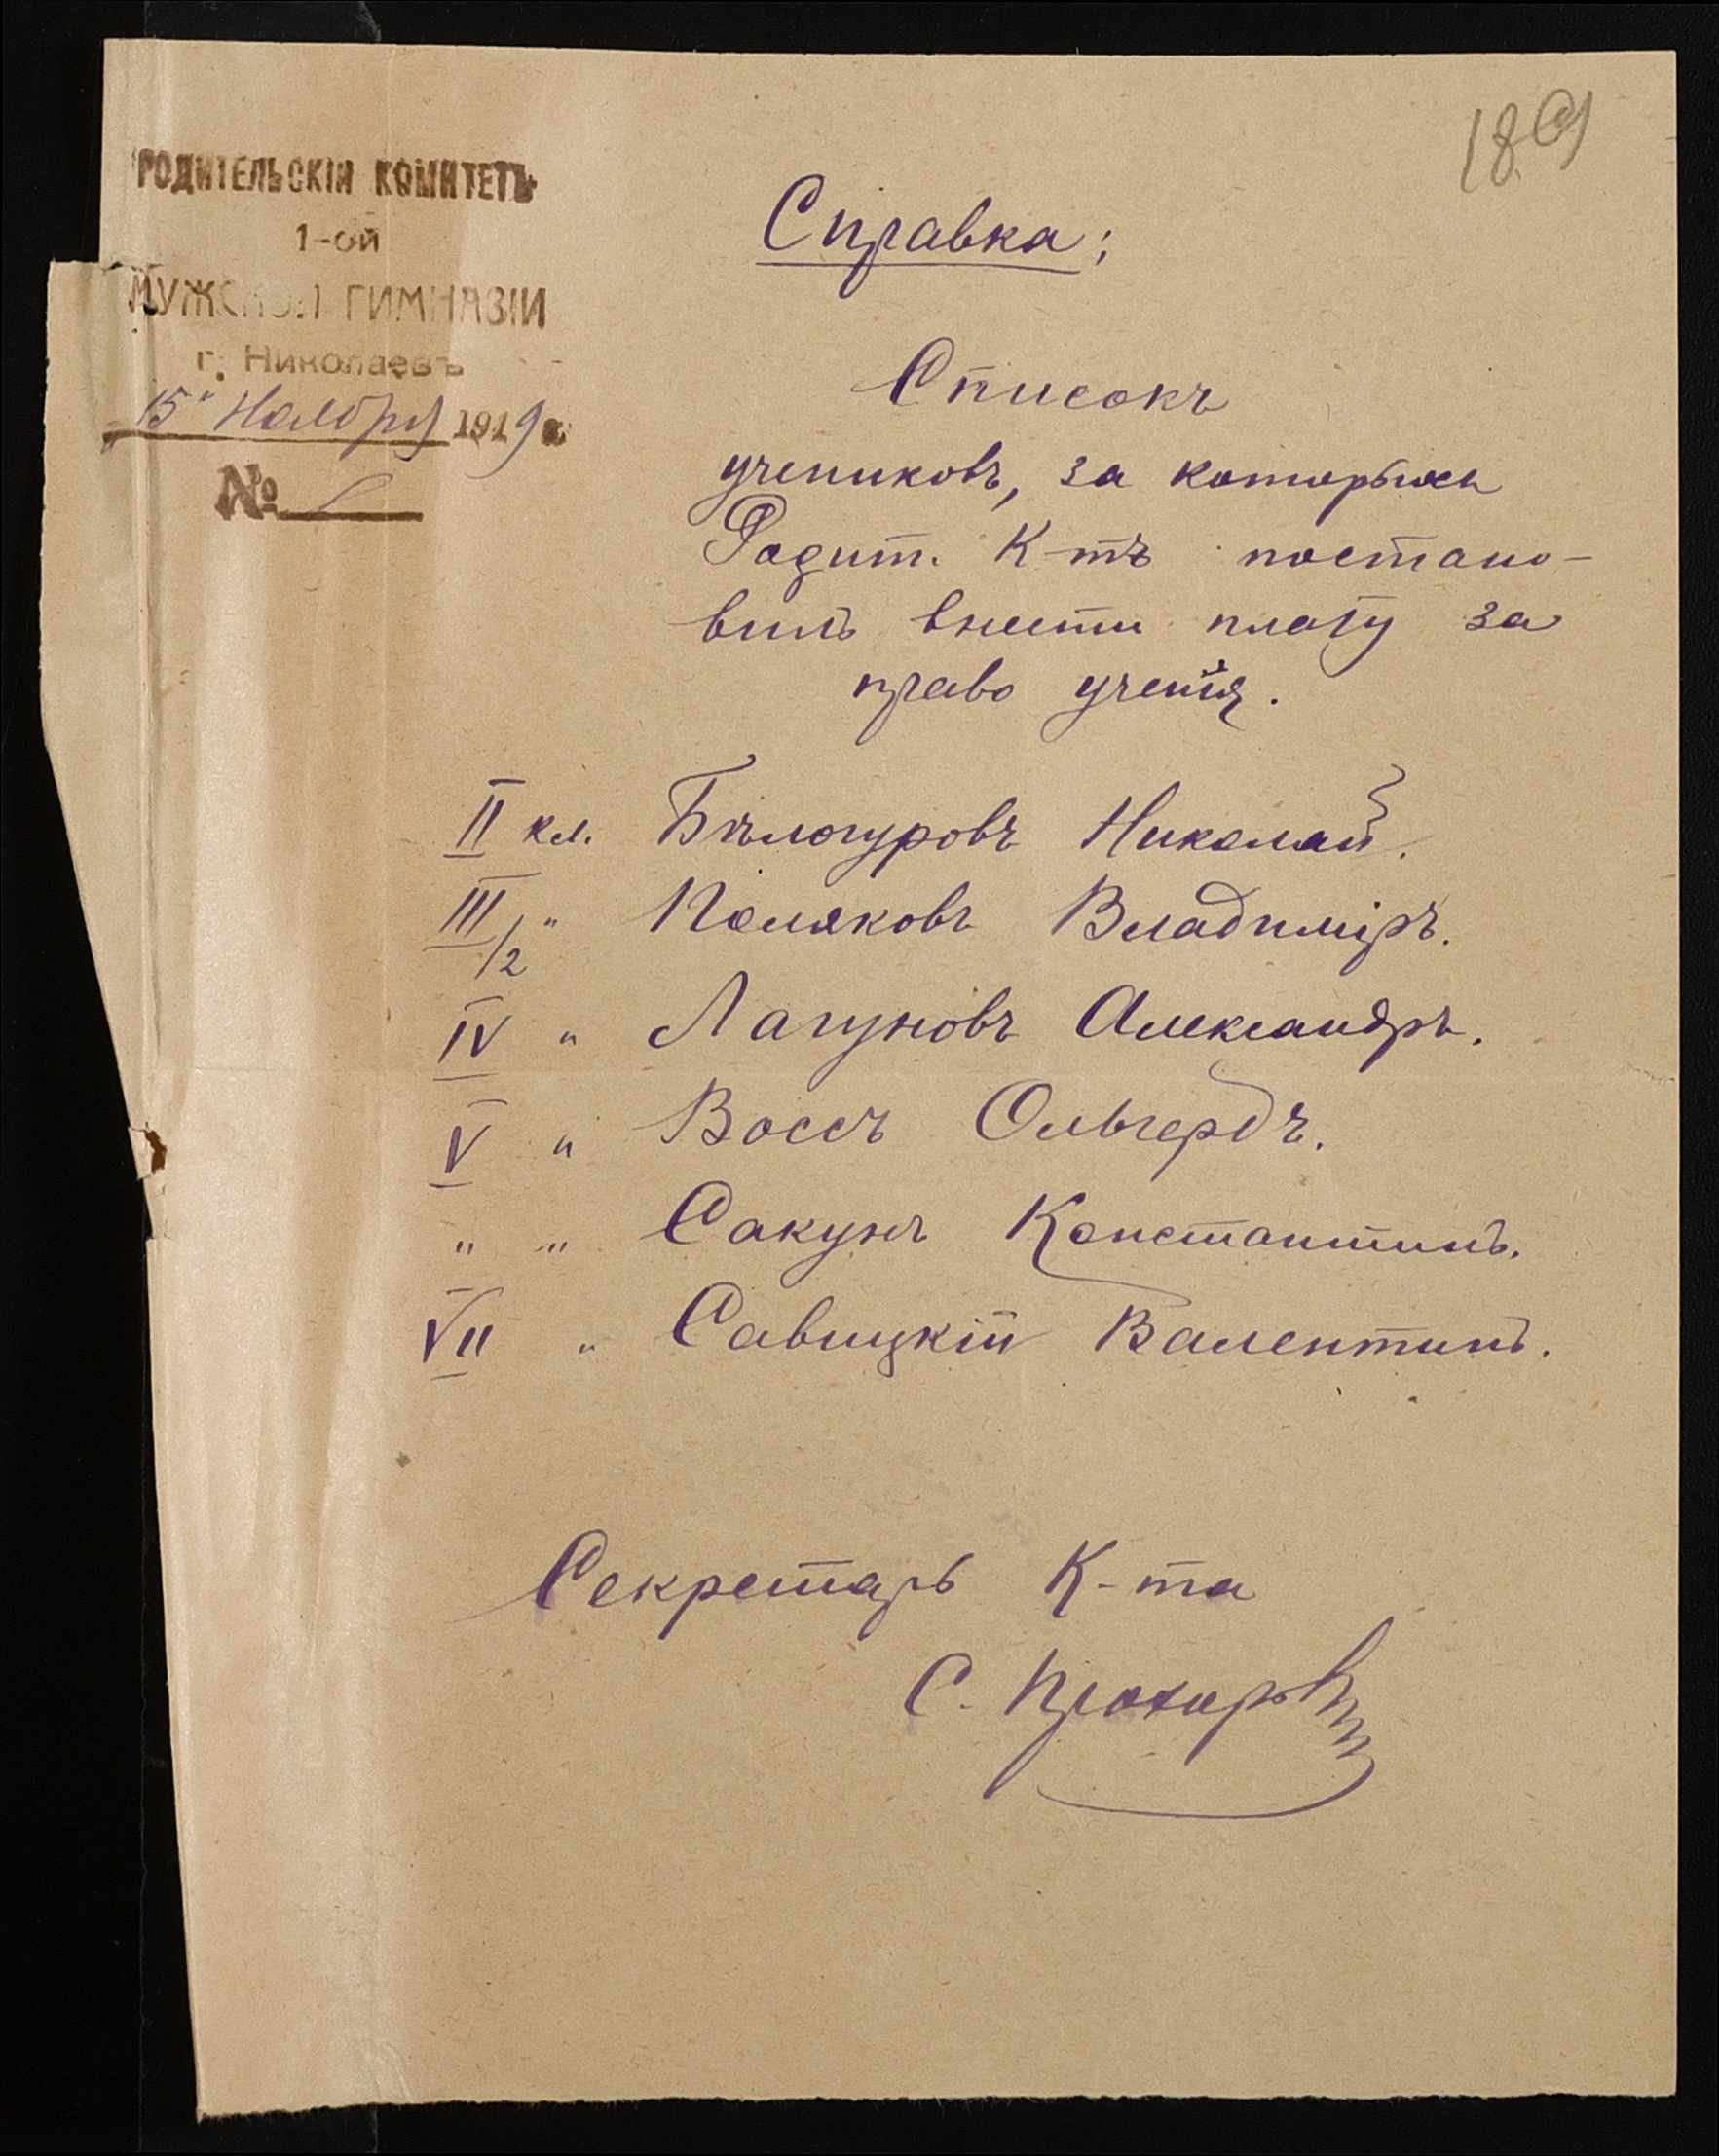 РОДИТЕЛЬСКІЙ КОМИТЕТЪ
1-ой
МУЖСКОЙ ГИМНАЗІИ
г. Николаевъ
15 Ноября 1919 г.
№
Справка:
Списокъ
учениковъ, за которыхъ
Родит. К-тъ постано-
вилъ внести плату за
право ученія.
II кл. Бѣлогуровъ Николай.
III/2 " Поляковъ Владиміръ.
IV " Лагуновъ Александръ.
V " Воссъ Ольгердъ.
" " Сакунъ Константинъ.
VII " Савицкій Валентинъ.
Секретарь К-та
С. Прохоров